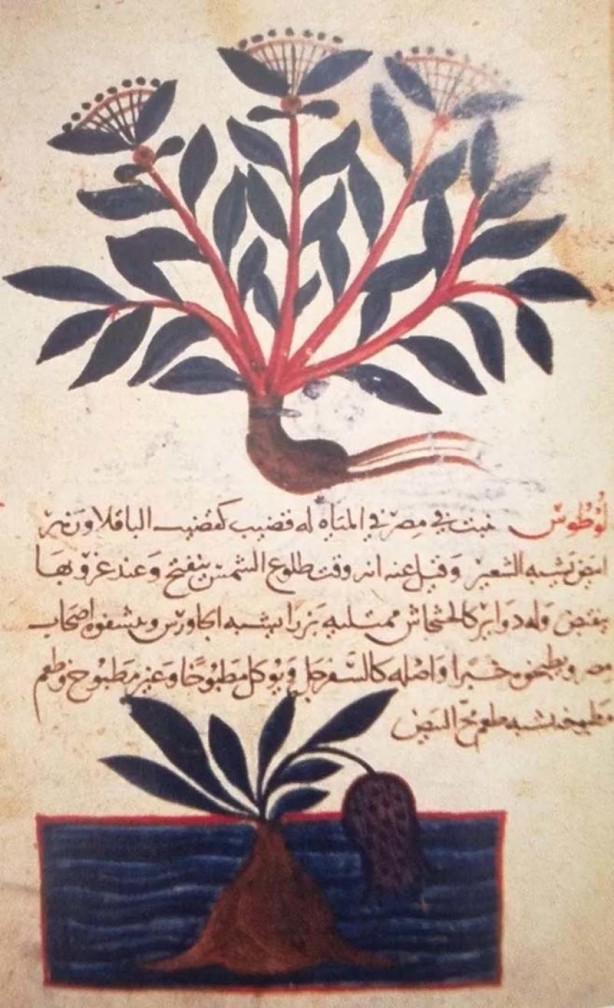 لوطوس ينبت في مصر في المياه له قضيب كقضيب الباقلا وزهر
ابيض يشبه الشعير وقيل عنه انه وقت طلوع الشمس يتفتح وعند غروبها
ينقبض وله دواير كالخشخاش ممتليه بزرا يشبه الجاورس اصحاب
مصر ويطبخوه خبزا واصله كالسفرجل ويوكل مطبوخا وغير مطبوخ وطعم
مطبوخه يشبه طعم مخ البيض